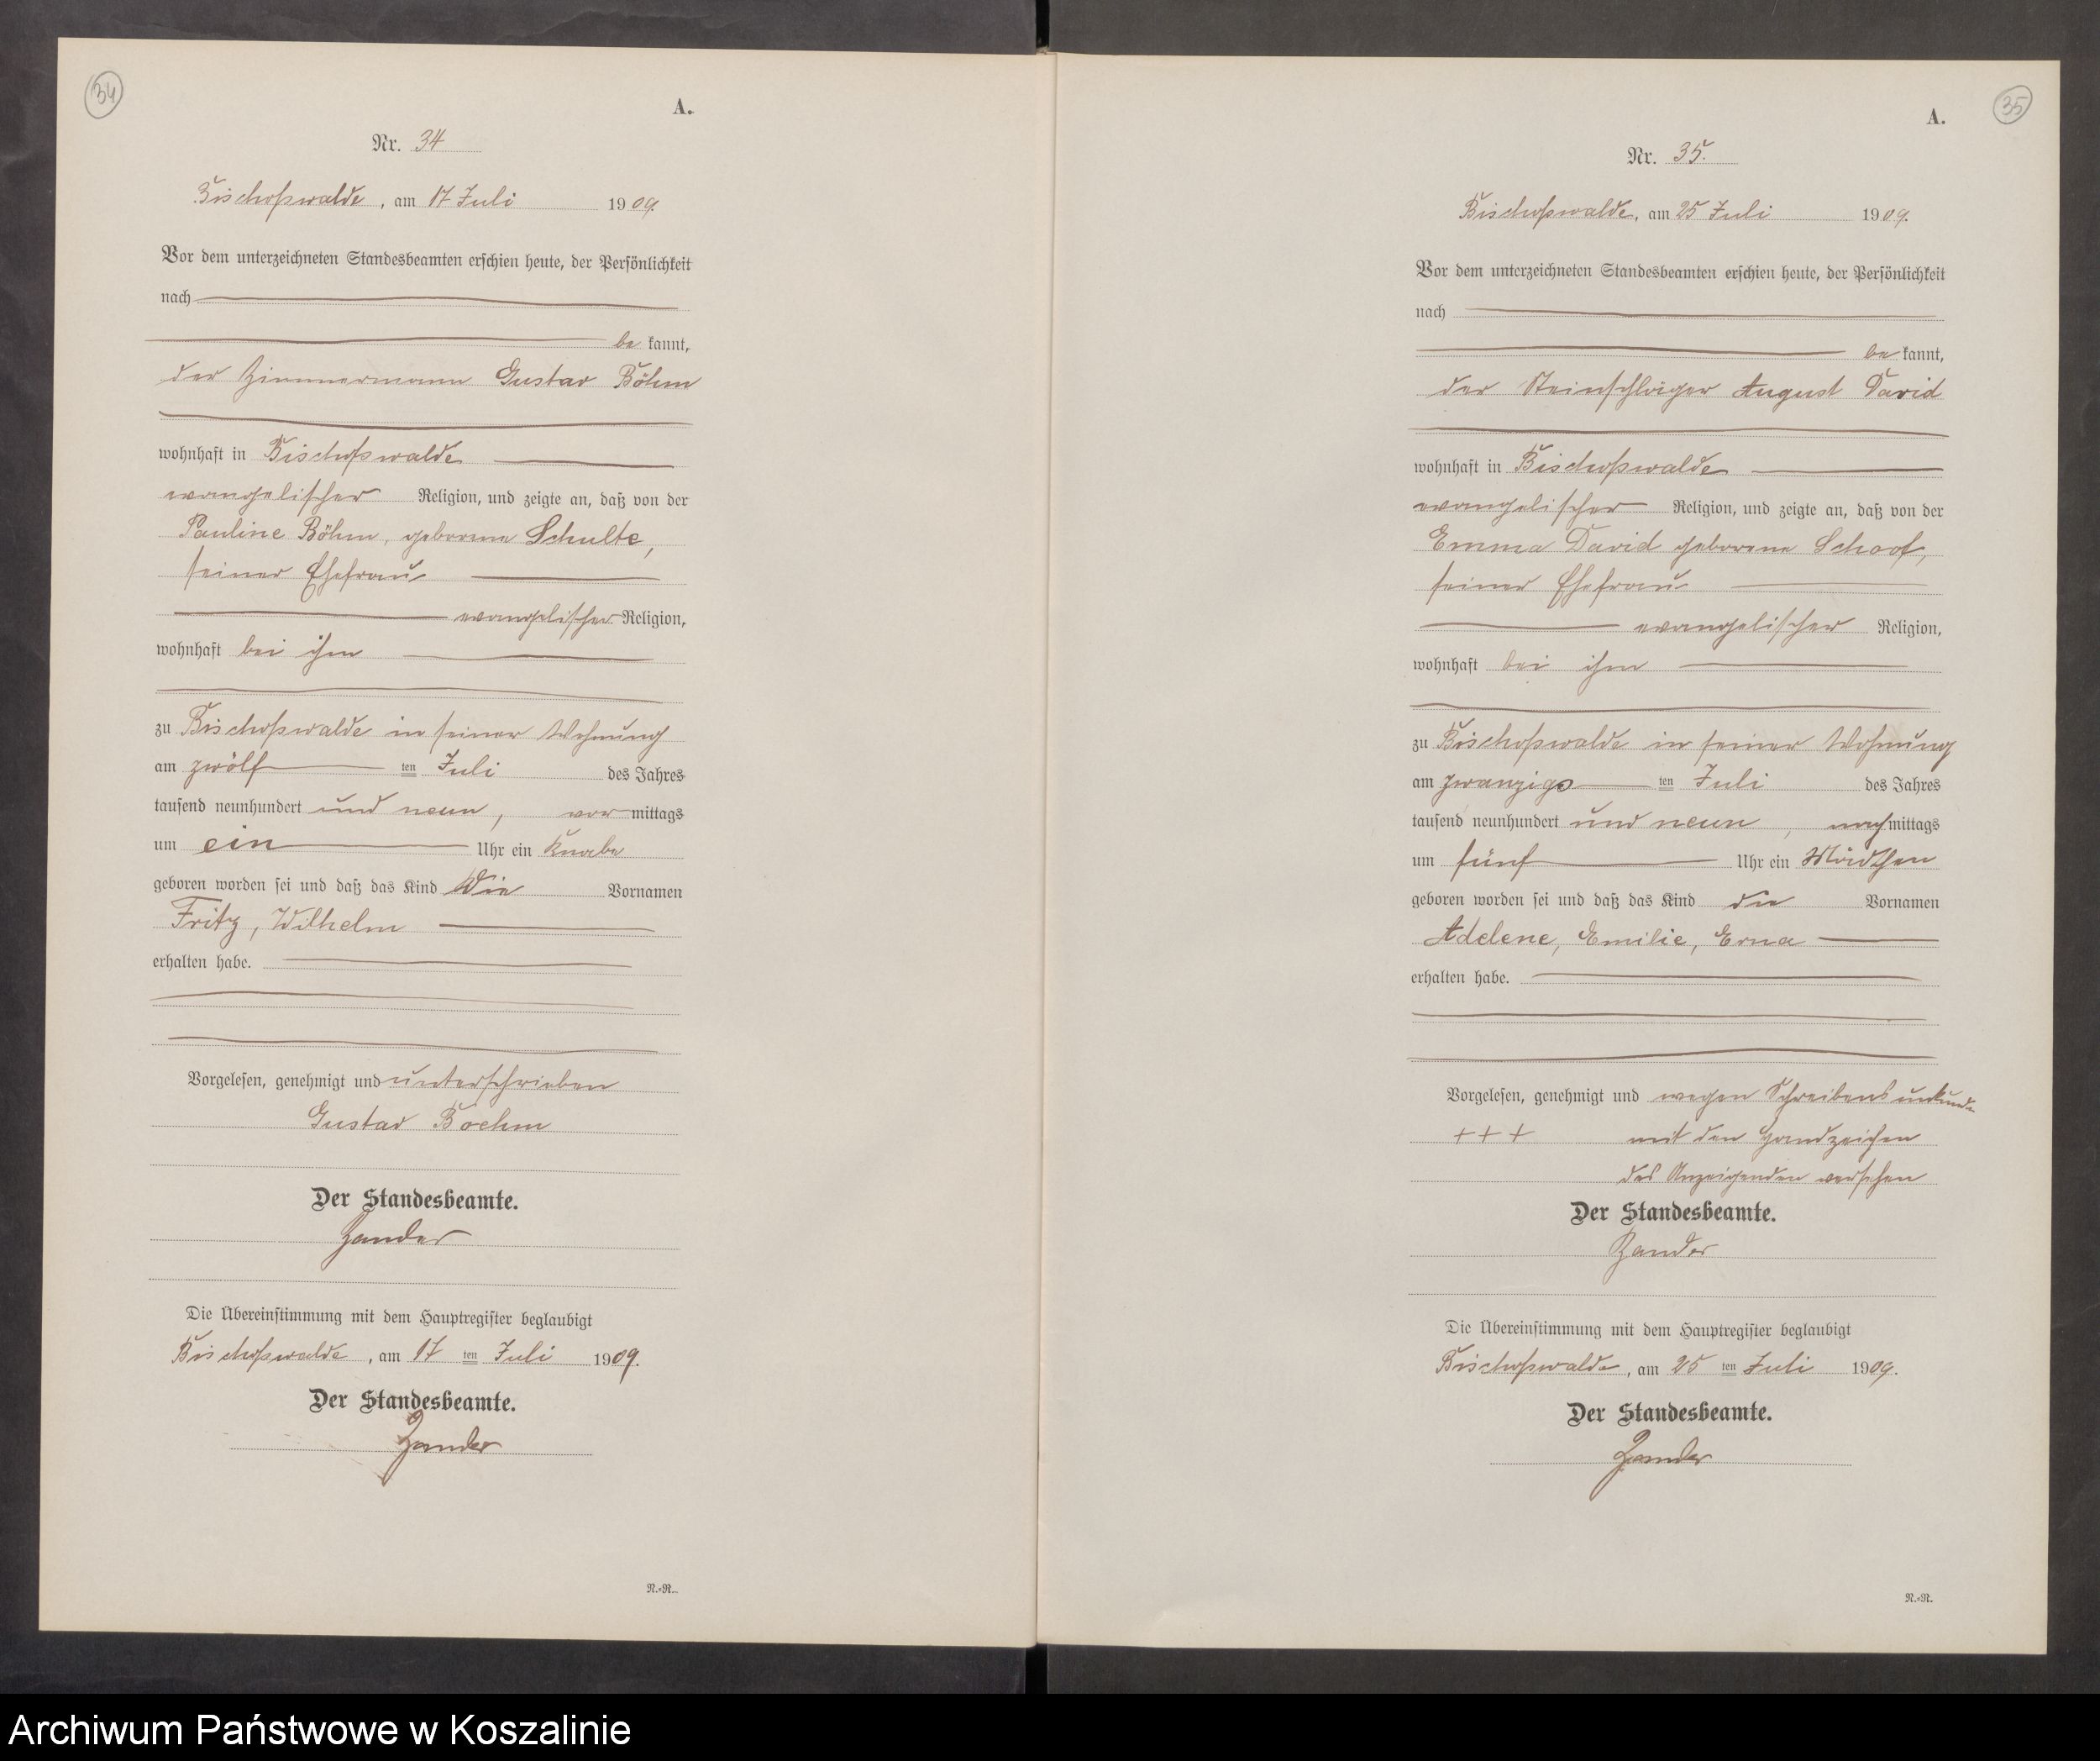 34
A.
Nr. 34
Bischofswalde, am 17 Juli 1909.
Vor dem unterzeichneten Standesbeamten erschien heute, der Persönlichkeit
nach
be kannt,
der Zimmermann Gustav Böhm
wohnhaft in Bischofswalde
evangelischer Religion, und zeigte an, daß von der
Pauline Böhm, geborene Schulte,
seiner Ehefrau
evangelischer Religion,
wohnhaft bei ihm
zu Bischofswalde in seiner Wohnung
am zwölf ten Juli des Jahres
tausend neunhundert und neun, vor mittags
um ein Uhr ein Knabe
geboren worden sei und daß das Kind die Vornamen
Fritz, Wilhelm
erhalten habe.
Vorgelesen, genehmigt und unterschrieben
Gustav Boehm
Der Standesbeamte.
Zander
Die Übereinstimmung mit dem Hauptregister beglaubigt
Bischofswalde, am 17 ten Juli 1909.
Der Standesbeamte.
Zander
N.=R.
35
A.
Nr. 35.
Bischofswalde, am 25 Juli 1909.
Vor dem unterzeichneten Standesbeamten erschien heute, der Persönlichkeit
nach
be kannt,
der Steinschläger August David
wohnhaft in Bischofswalde
evangelischer Religion, und zeigte an, daß von der
Emma David geborene Schoof,
seiner Ehefrau
evangelischer Religion,
wohnhaft bei ihm
zu Bischofswalde in seiner Wohnung
am zwanzigs ten Juli des Jahres
tausend neunhundert und neun, nach mittags
um fünf Uhr ein Mädchen
geboren worden sei und daß das Kind die Vornamen
Adelene, Emilie, Erna
erhalten habe.
Vorgelesen, genehmigt und wegen Schreibensunkunde
+++ mit den Handzeichen
des Anzeigenden versehen
Der Standesbeamte.
Zander
Die Übereinstimmung mit dem Hauptregister beglaubigt
Bischofswalde, am 25 ten Juli 1909.
Der Standesbeamte.
Zander
N.=R.
Archiwum Państwowe w Koszalinie